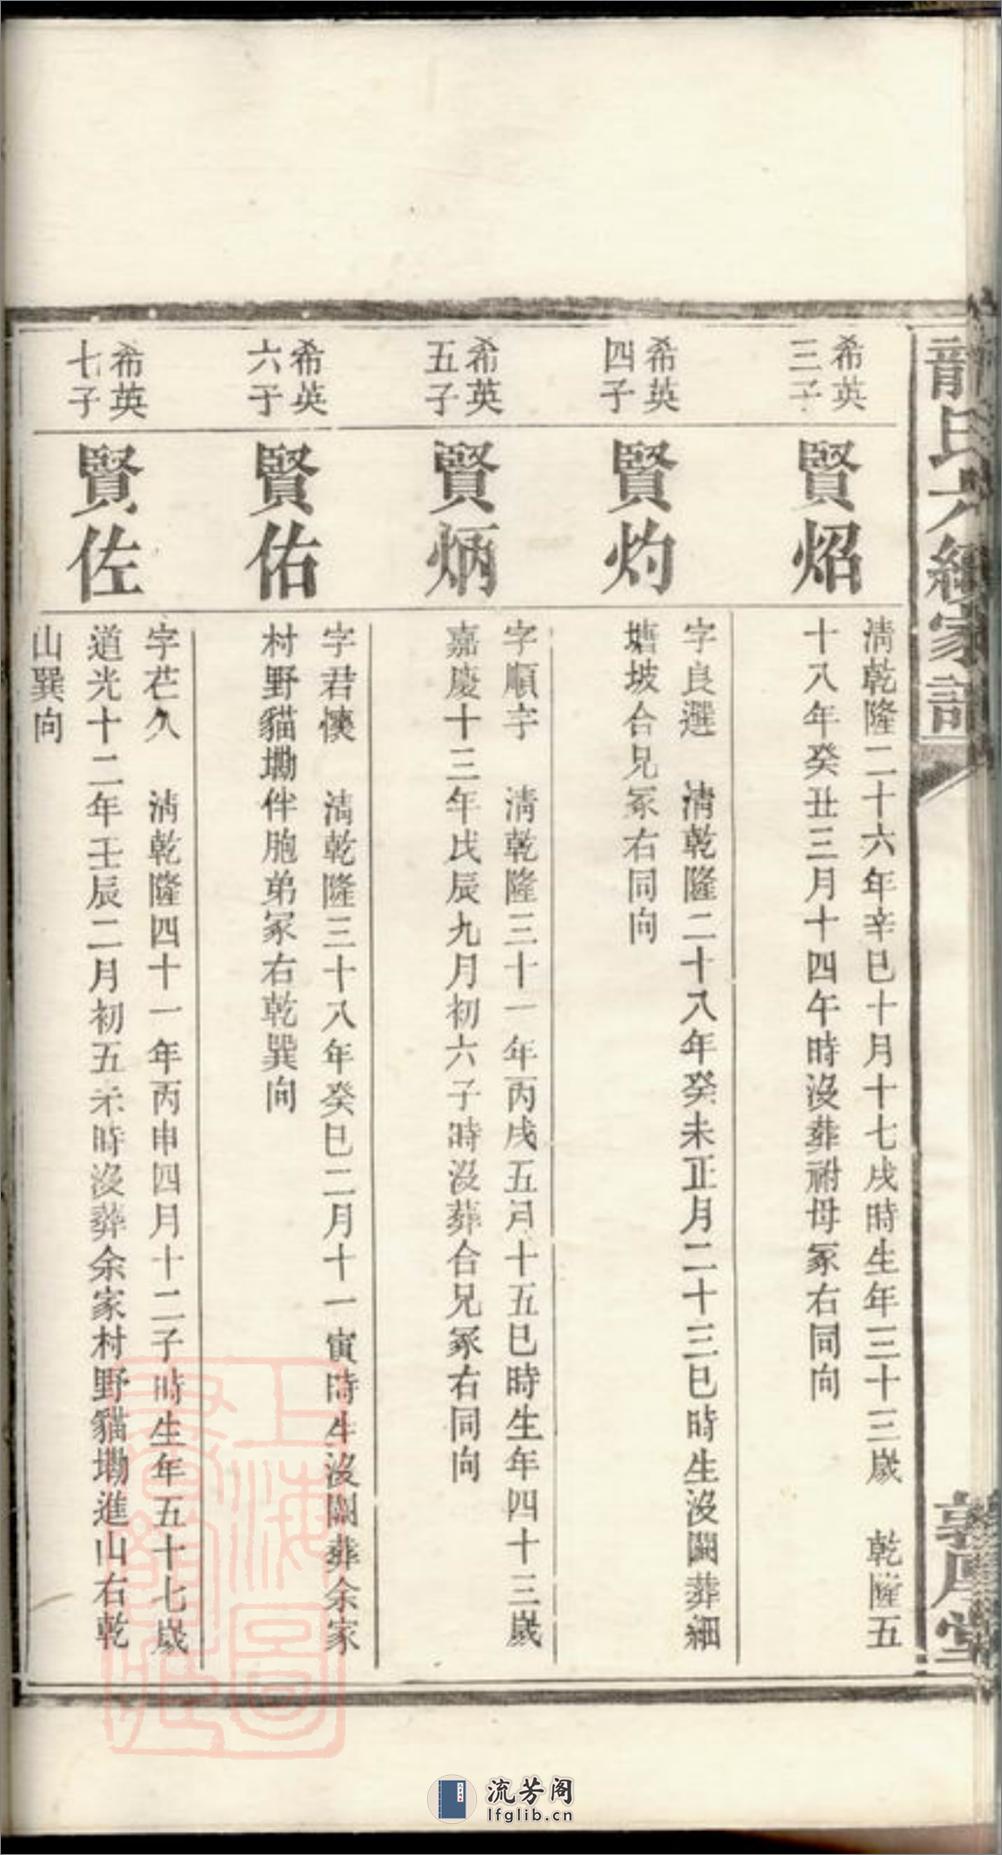 龍氏六續家譜
敦厚堂
希英
三子
賢炤
清乾隆二十六年辛巳十月十七戌時生年三十三歲　乾隆五
十八年癸丑三月十四午時沒葬祔母冢右同向
希英
四子
賢灼
字良選　清乾隆二十八年癸未正月二十三巳時生沒闕葬細
塘坡合兄冢右同向
希英
五子
賢炳
字順字　清乾隆三十一年丙戌五月十五巳時生年四十三歲
嘉慶十三年戊辰九月初六子時沒葬合兄冢右同向
希英
六子
賢佑
字君懷　清乾隆三十八年癸巳二月十一寅時生沒闕葬余家
村野貓塅伴胞弟冢右乾巽向
希英
七子
賢佐
字芒久　清乾隆四十一年丙申四月十二子時生年五十七歲
道光十二年壬辰二月初五未時沒葬余家村野貓塅進山右乾
山巽向
上海圖
書館藏
流芳阁
lfglib.cn